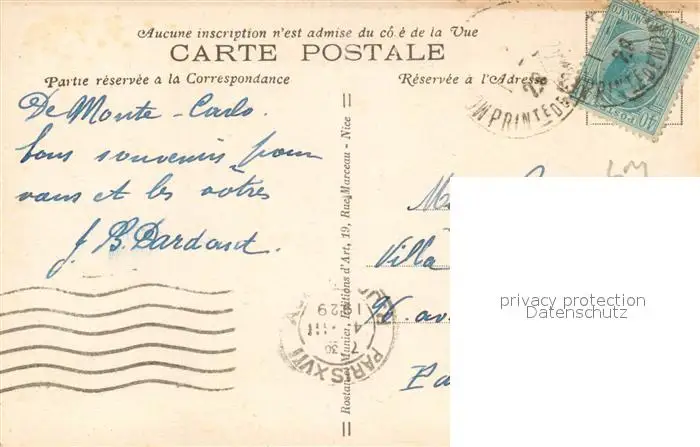 Aucune inscription n'est admise du cô é de la Vue
CARTE POSTALE
Partie réservée a la Correspondance
Réservée à l'Adresse
De Monte-Carlo.
bons souvenirs pour
vous et les vôtres
J. B. Dardant.
Rostan et Munier, Editions d'Art, 19, Rue Marceau - Nice
Villa
Pa
PARIS XVII
7 30
4 - III
1929
MONACO
POSTES
40
28
privacy protection
Datenschutz